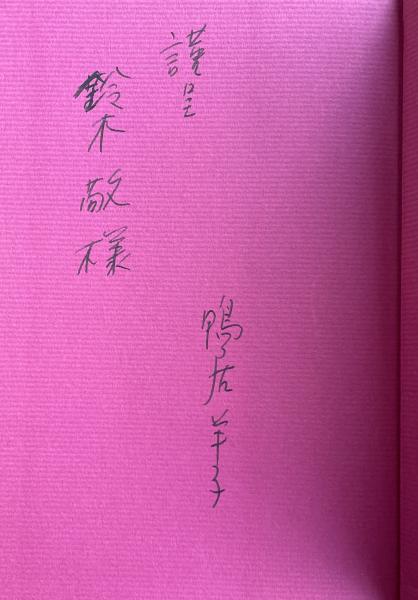 謹呈
鈴木敬様
鴨居羊子